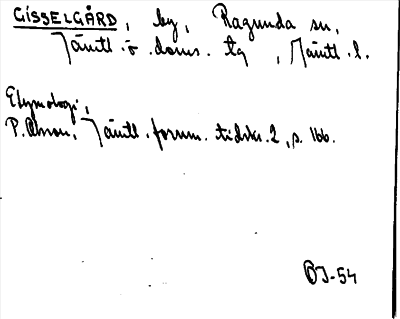 GISSELGÅRD, by, Ragunda sn,
Jämtl. ö. doms. tg, Jämtl. l.
Etymologi,
P. Olsson, Jämtl. fornm. tidskr. 2, p. 166.
OJ-54